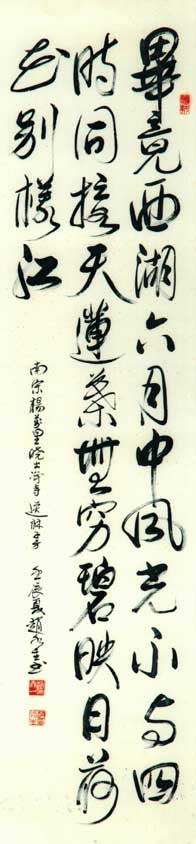 畢竟西湖六月中風光不与四
時同接天蓮葉無窮碧映日荷
花別樣紅
南宋楊萬里曉出淨慈寺送林子方 壬辰夏趙